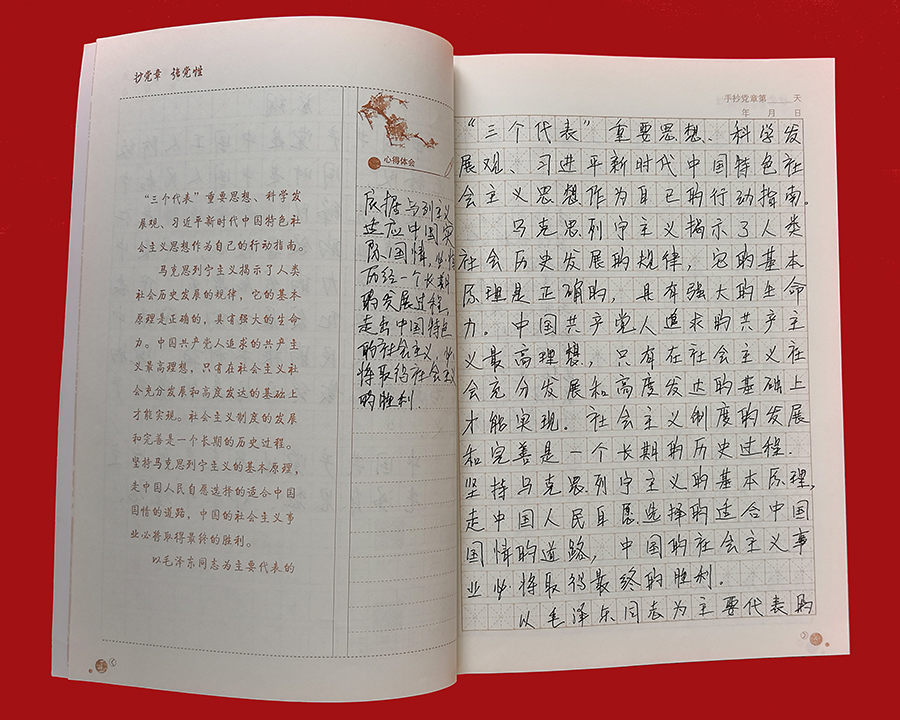 抄党章 强党性
“三个代表”重要思想、科学发
展观、习近平新时代中国特色社
会主义思想作为自己的行动指南。
马克思列宁主义揭示了人类
社会历史发展的规律，它的基本
原理是正确的，具有强大的生命
力。中国共产党人追求的共产主
义最高理想，只有在社会主义社
会充分发展和高度发达的基础上
才能实现。社会主义制度的发展
和完善是一个长期的历史过程。
坚持马克思列宁主义的基本原理，
走中国人民自愿选择的适合中国
国情的道路，中国的社会主义事
业必将取得最终的胜利。
以毛泽东同志为主要代表的
心得体会
马列主义
适应中国实
际国情，必
历经一个长期
的发展过程，
走出中国特色
的社会主义，必
将取得社会主义
的胜利.
手抄党章第 天
年 月 日
“三个代表”重要思想、科学发
展观、习进平新时代中国特色社
会主义思想作为自己的行动指南。
马克思列宁主义揭示了人类
社会历史发展的规律，它的基本
原理是正确的，具有强大的生命
力。中国共产党人追求的共产主
义最高理想，只有在社会主义社
会充分发展和高度发达的基础上
才能实现.社会主义制度的发展
和完善是一个长期的历史过程.
坚持马克思列宁主义的基本原理，
走中国人民自愿选择的适合中国
国情的道路，中国的社会主义事
业必将取得最终的胜利.
以毛泽东同志为主要代表的